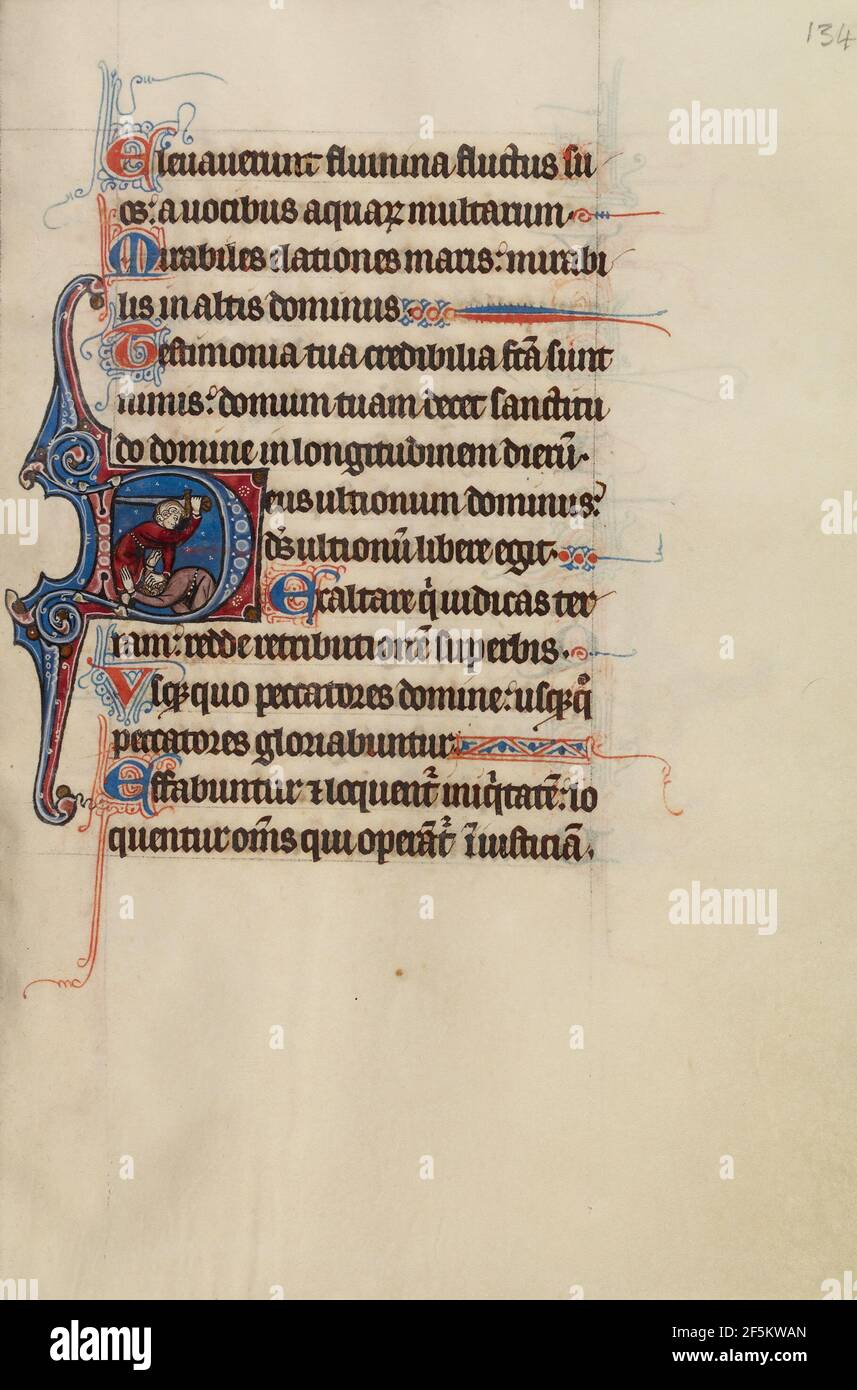 134
Eleuauerunt flumina fluctus su
os: a uocibus aquaꝝ multarum.
Mirabiles elationes maris: mirabi
lis in altis dominus.
Testimonia tua credibilia fc̄a sunt
nimis: domum tuam decet sanctitu
do domine in longitudinem dierū.
Deus ultionum dominus:
ds̄ ultionū libere egit.
Exaltare qͥ iudicas ter
ram: redde retributionē superbis.
Vsqꝫ quo peccatores domine: usqꝫ qͦ
peccatores gloriabuntur.
Effabuntur ⁊ loquentᷣ iniqͥtatē: lo
quentur om̄s qui operāt᷑ īiusticiā.
alamy
Image ID: 2F5KWAN
www.alamy.com